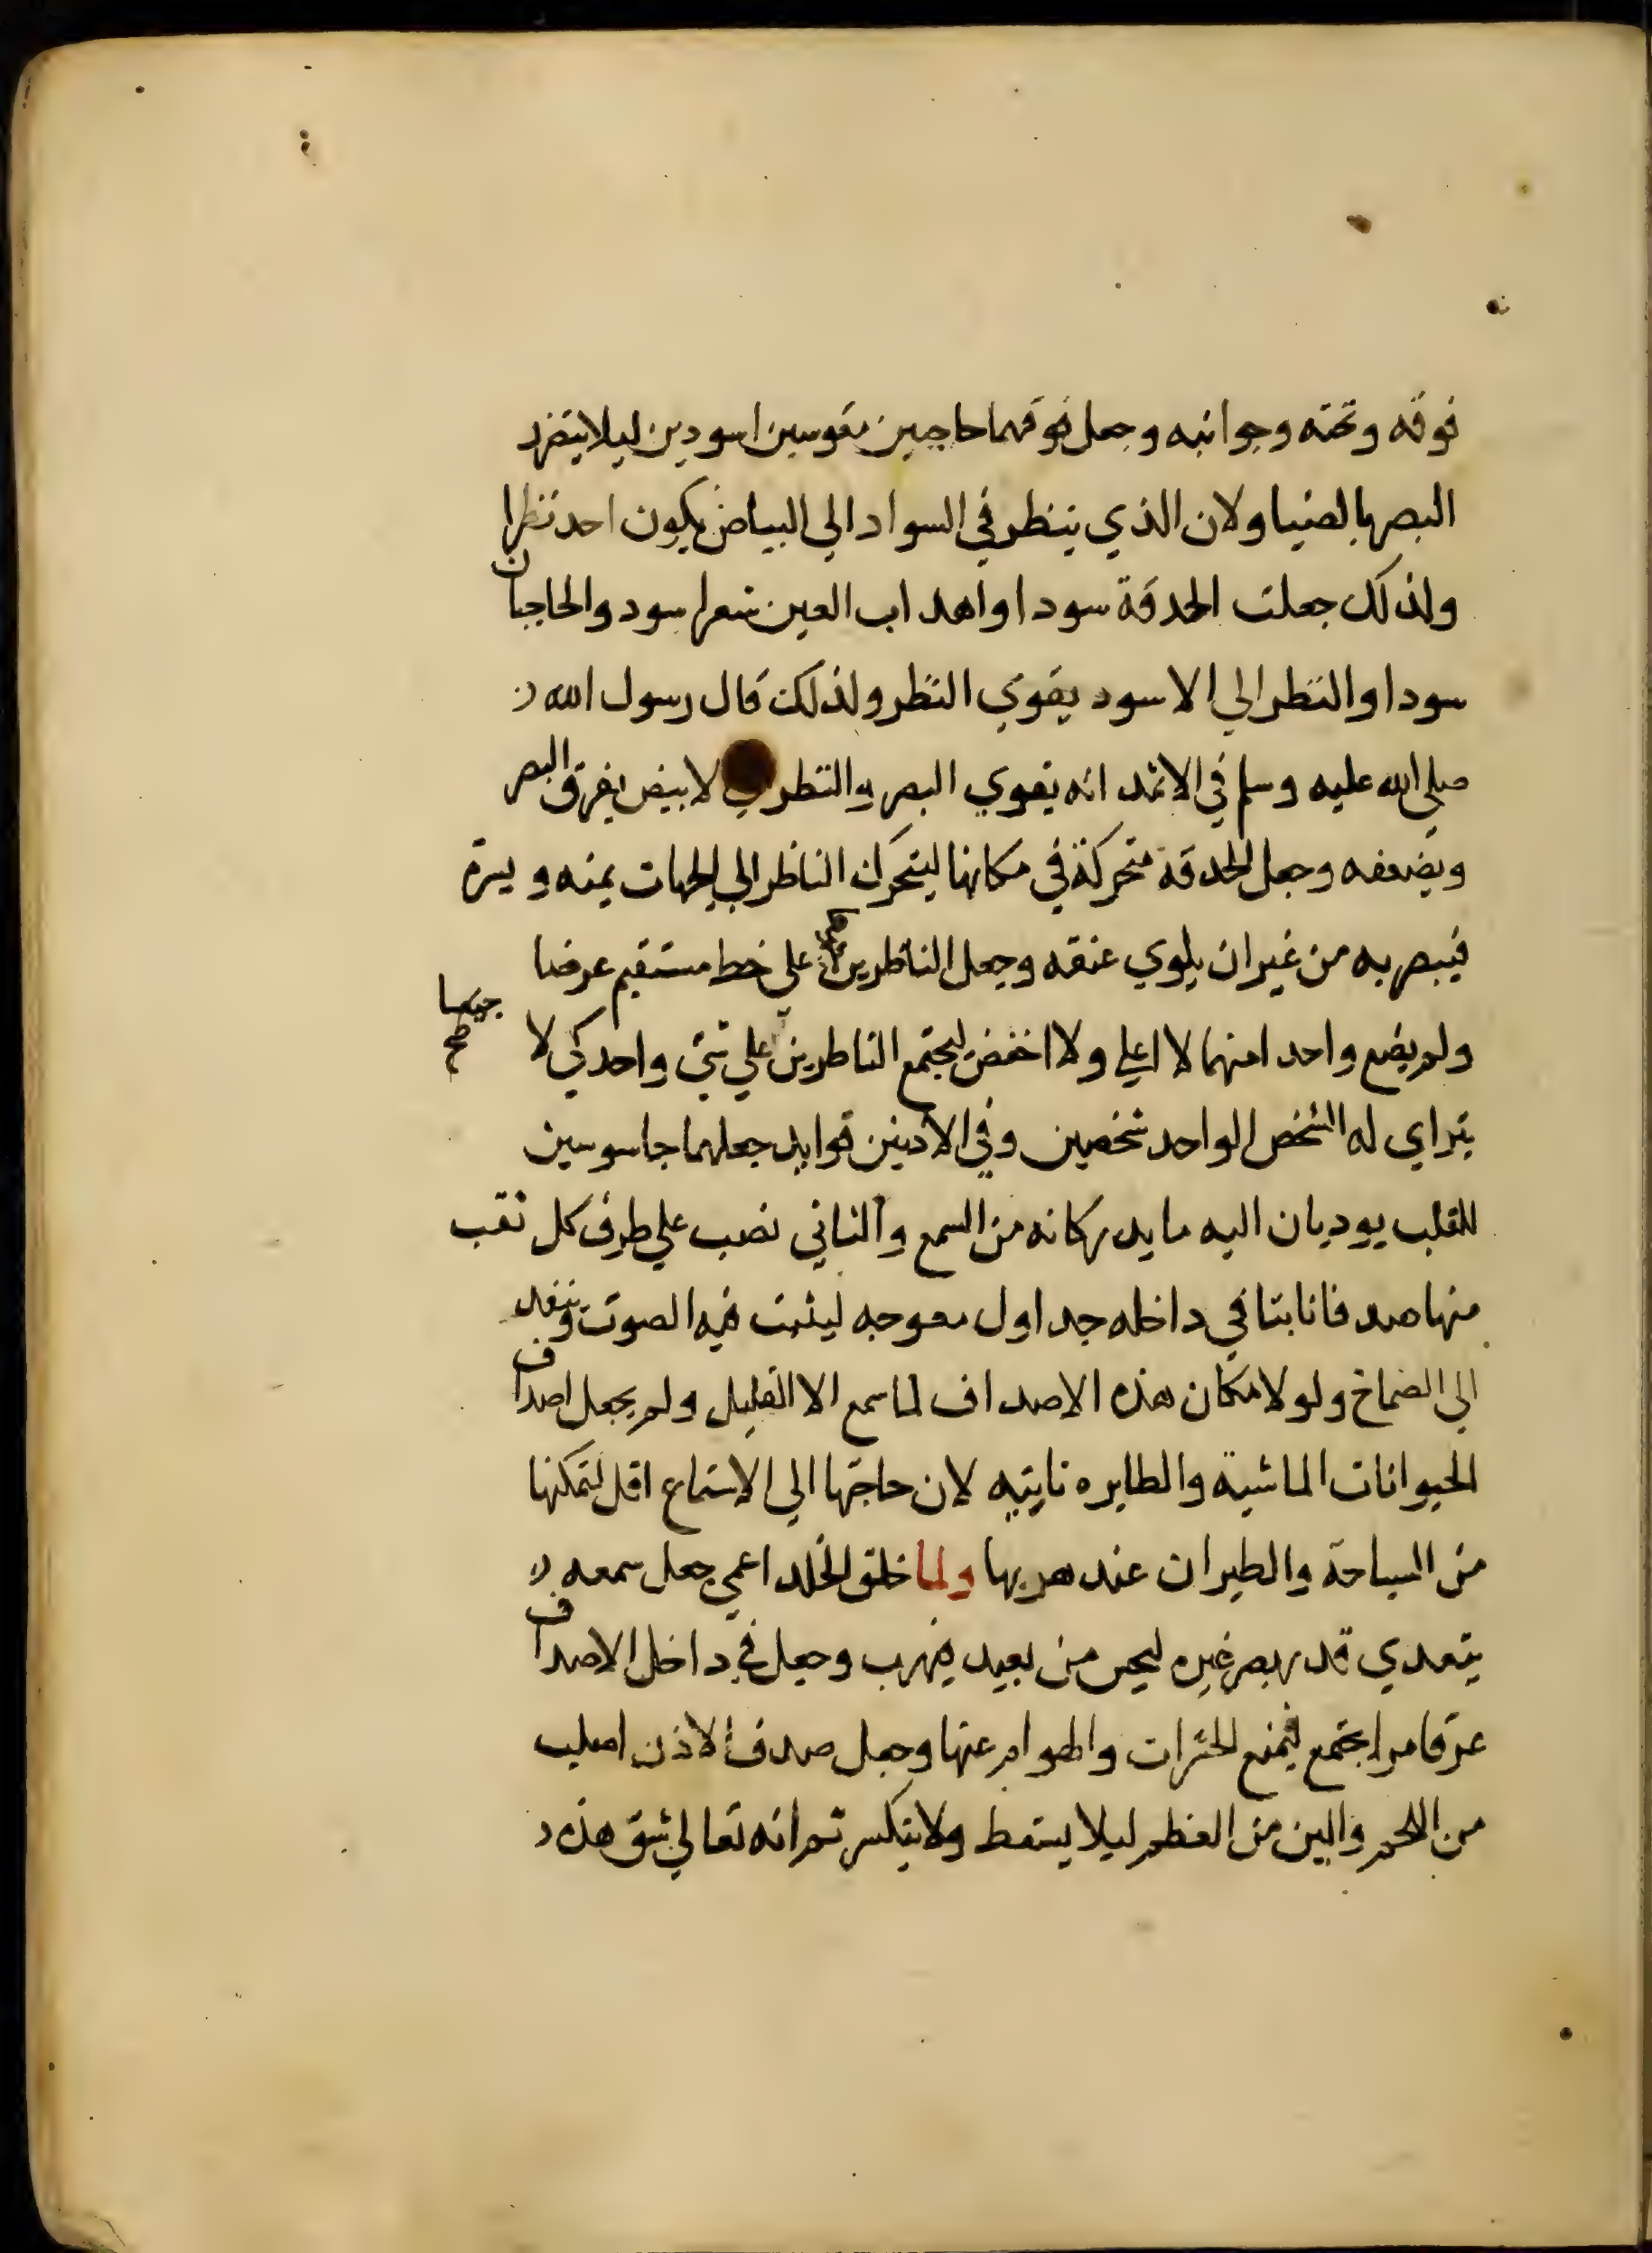 فوقه وتحته وجوانبه وجعل فوقهما حاجبين مقوسين اسودين ليلا يتفرد
البصر بالضيا ولان الذي ينظر في السواد الي البياض يكون احد نظرا
ولذلك جعلت الحدقة سودا واهداب العين شعرا سود والحاجبان
سودا والنظر الي الاسود يقوي النظر ولذلك قال رسول الله
صلي الله عليه وسلم في الاثمد انه يقوي البصر والنظر لابيض يفرق البصر
ويضعفه وجعل الحدقة متحركة في مكانها ليتحرك الناظر الي الجهات يمنه ويسرة
فيبصر به من غير ان يلوي عنقه وجعل الناظرين علي خط مستقيم عرضا
ولم يضع واحد امنهما لا اعلي ولا اخفض ليجتمع الناظرين علي شي واحد كي لا
جميعا صح
يتراي له الشخص الواحد شخصين وفي الاذنين فوايد جعلهما جاسوسين
للقلب يوديان اليه ما يدركانه من السمع والثاني نصب علي طرف كل ثقب
منها صدفا نابتا في داخله جداول معوجه ليثبت فيه الصوت وينفد
الي الضماخ ولولا مكان هذه الاصداف لما سمع الا القليل ولم يجعل اصداف
الحيوانات الماشية والطايره نايتيه لان حاجتها الي الاستماع اقل لتمكنها
من السباحة والطيران عند هربها ولما خلق الخلد اعمي جعل سمعه
يتعدي قدر بصر غيره ليحس من بعيد فيهرب وجعل في داخل الاصداف
عرقا مرا يجتمع فيمنع الحشرات والهوام عنها وجعل صدف الاذن اصلب
من اللحم والين من العظم ليلا يسقط ولا ينكسر ثم انه تعالي شق هذه